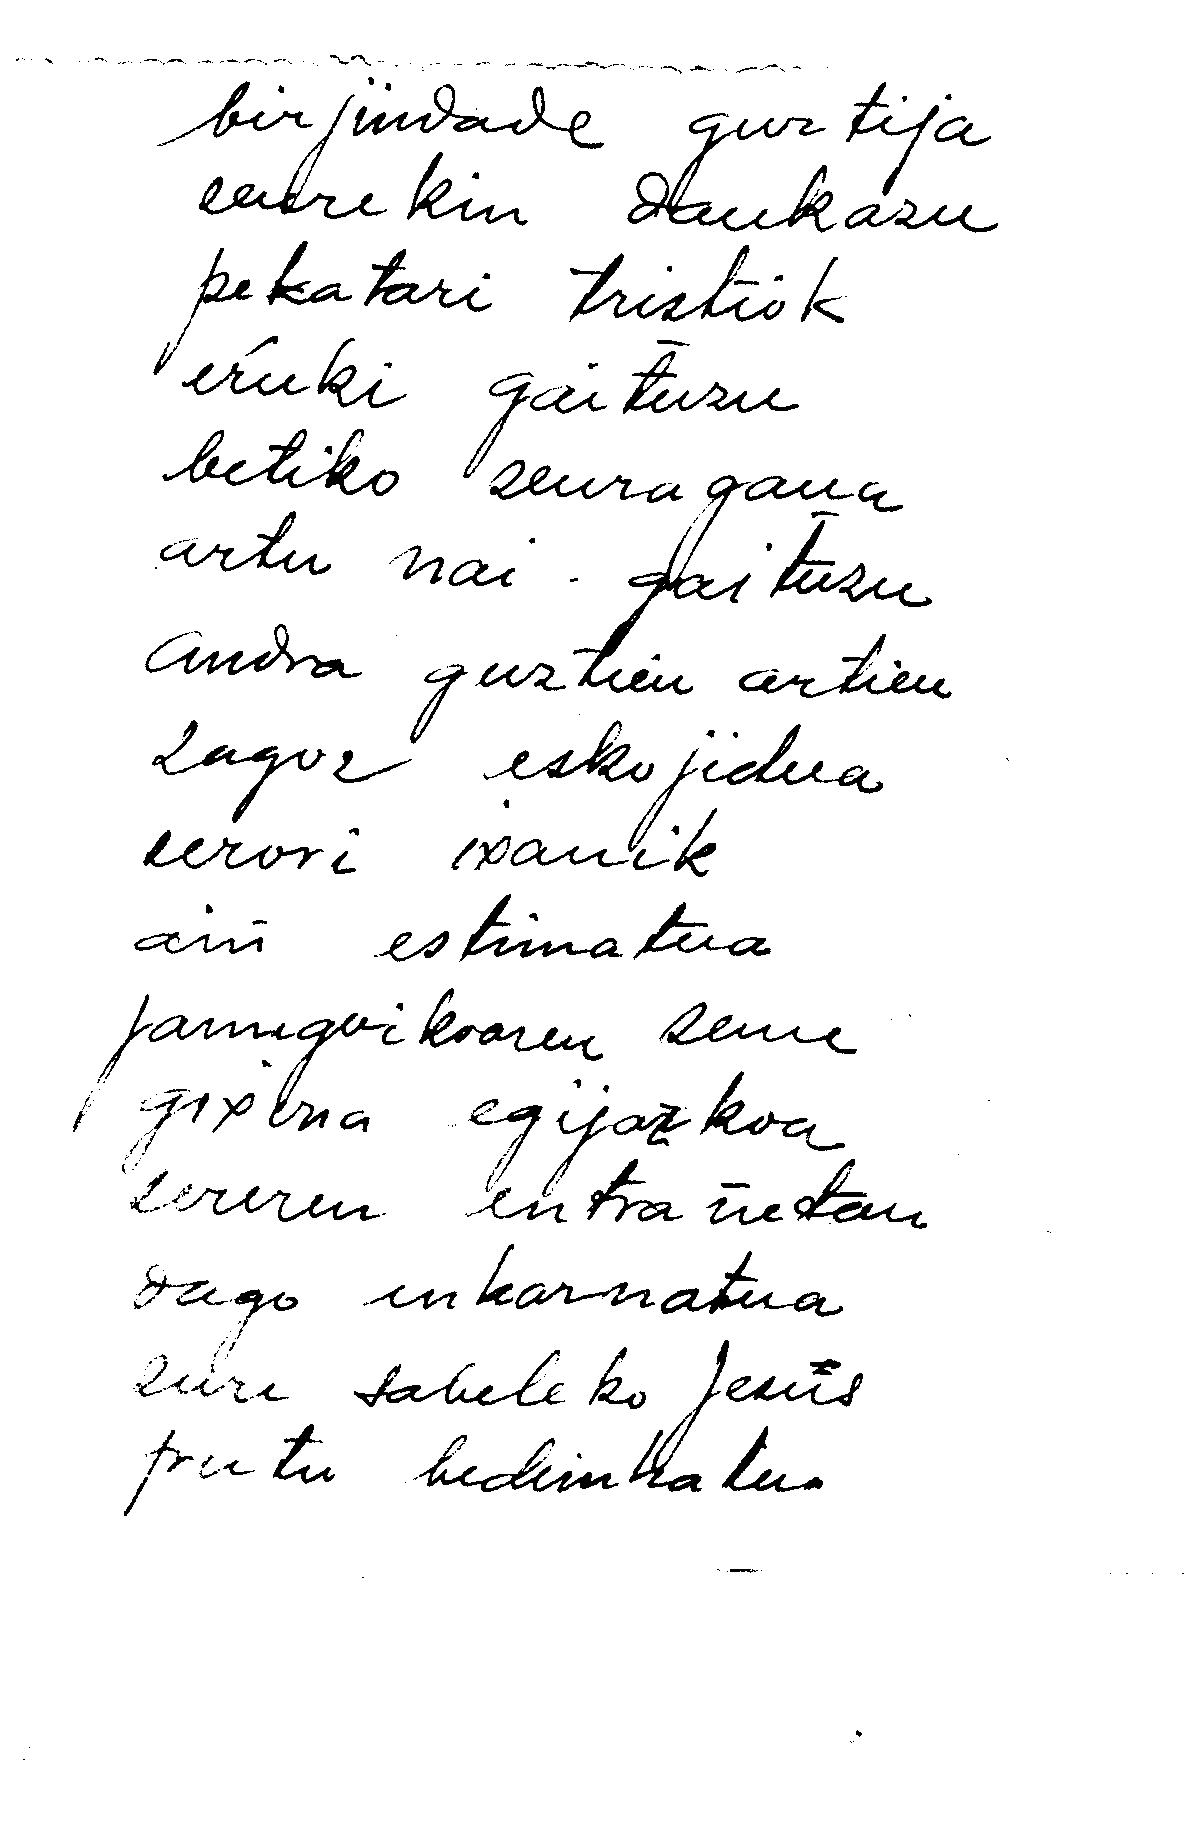 birjindade guztija
seurekin daukazu
pekatari tristiok
eŕuki gaitŭzu
betiko seuragana
artu nai gaitŭzu
andra guztien artien
zagoz eskojidua
serori ixanik
aiñ estimatua
Jaungoikoaren seme
gixona egijazkoa
sereren entrañetan
dago enkarnatua
zure sabeleko Jesús
frutu bedinkatua